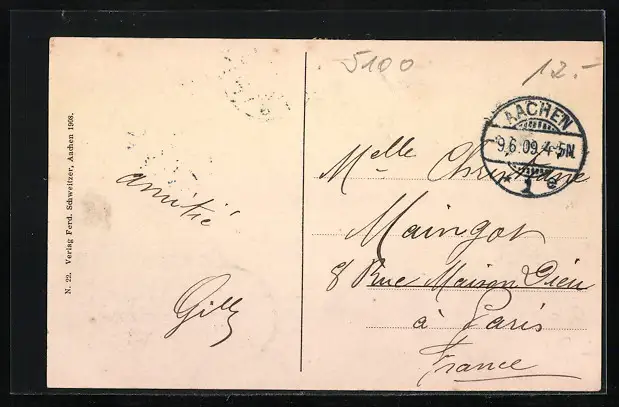 5100
12.-
AACHEN
9.6.09.4-5N
* 1 e
N. 22. Verlag Ferd. Schweitzer, Aachen 1908.
amitié
Gilly
Melle Christiane
Maingot
8 Rue Maison Dieu
à Paris
France